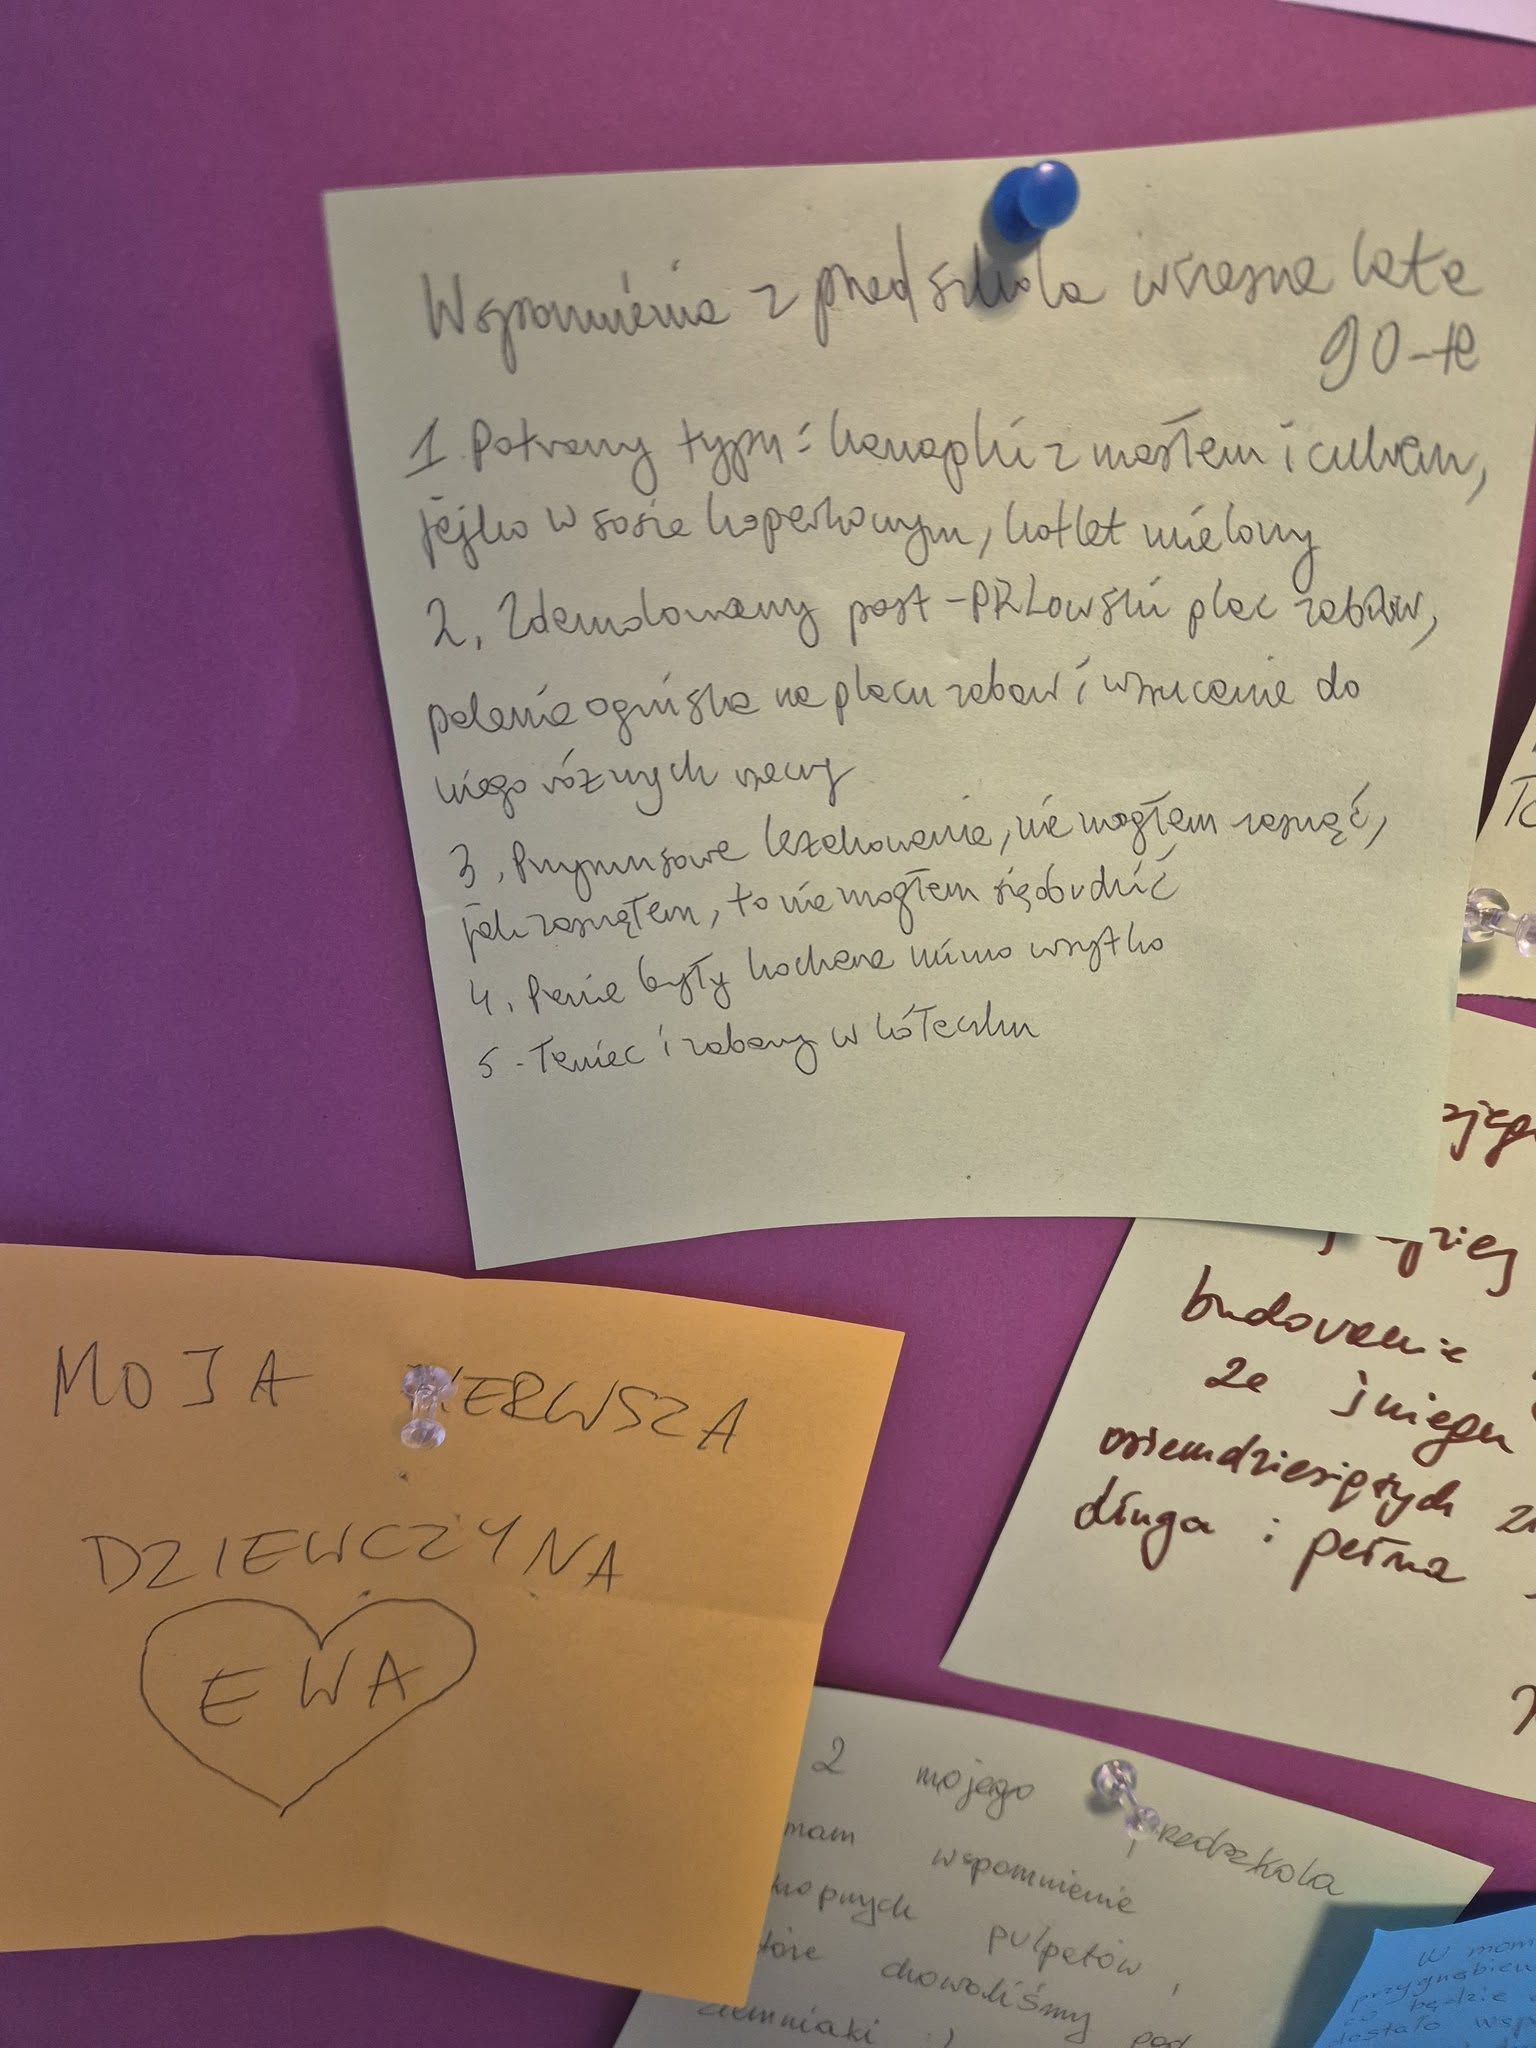 Wspomnienia z przedszkola wczesne lata
90-te
1. Potrawy typu: kanapki z masłem i cukrem,
jejko w sosie koperkowym, kotlet mielony
2. Zdemolowany post-PRLowski plac zabaw,
palenie ogniska na placu zabaw i wrzucanie do
niego różnych rzeczy
3. Przymusowe leżakowanie, nie mogłem zasnąć,
jak zasnąłem, to nie mogłem się obudzić
4. Panie były kochane mimo wszytko
5. Taniec i zabawy w kółeczku
MOJA PIERWSZA
DZIEWCZYNA
EWA
budowanie
ze śniegu
osiemdziesiątych
długa i pełna
Z mojego przedszkola
mam wspomnienie
okropnych pulpetów,
które chowaliśmy pod
ziemniaki :)
W mom
przygnębien
co będzie
dostało wsp